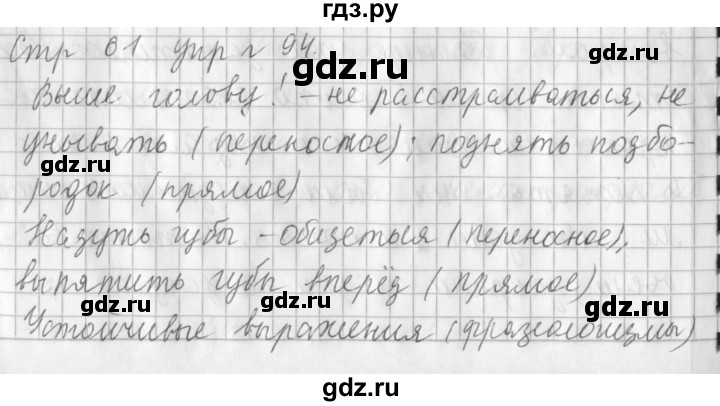 гдз.ру
Стр 61 упр № 94.
Выше голову! – не расстраиваться, не
унывать (переносное); поднять подбо-
gdz.ru
gdz.ru
родок (прямое)
gdz.ru
Надуть губы – обидеться (переносное),
выпятить губы вперёд (прямое)
gdz.ru
gdz.ru
gdz.ru
Устойчивые выражения (фразеологизмы)
gdz.ru